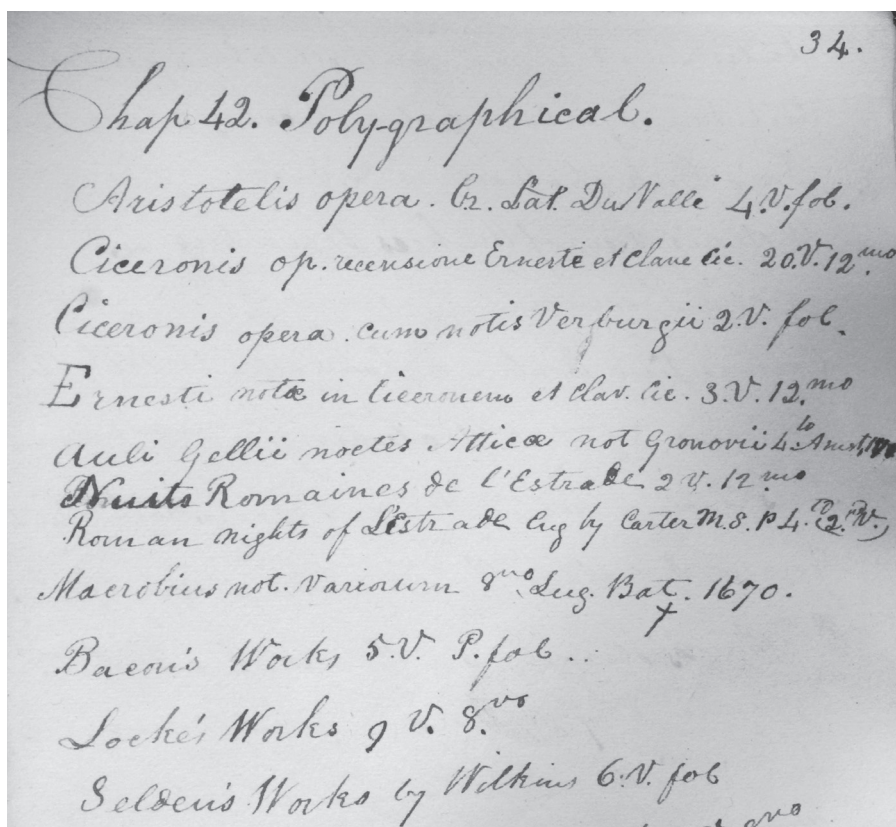 34.
Chap 42. Polygraphical.
Aristotelis opera. Gr. Lat. Du Valli 4.V. fol.
Ciceronis op. recensione Ernesti et clave Cic. 20.V. 12.mo
Ciceronis opera cum notis Verburgii 2.V. fol.
Ernesti notæ in Ciceronem et clav. Cic. 3.V. 12.mo
Auli Gellii noctes Atticæ not Gronovii 4.to Amst.
Nuits Romaines de l'Estrade 2 V. 12 mo
Roman nights of L'Estrade Eng by Carter M.S. P 4.to (2.V.)
Macrobius not. variorum 8vo. Lug. Bat. 1670.
Bacon's Works 5.V. P. fol..
Locke's Works 9 V. 8.vo
Selden's Works by Wilkins 6.V. fol